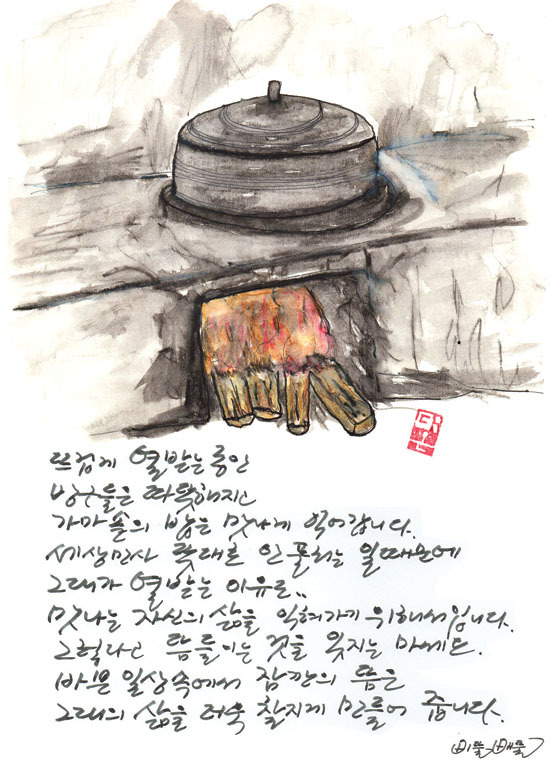 뜨겁게 열받는 동안
방구들은 따뜻해지고
가마솥의 밥은 맛나게 익어갑니다.
세상만사 뜻대로 안 풀리는 일때문에
그대가 열받는 이유도..
맛나는 자신의 삶을 익혀가기 위해서입니다.
그렇다고 뜸들이는 것을 잊지는 마세요.
바쁜 일상속에서 잠깐의 뜸은
그대의 삶을 더욱 찰지게 만들어 줍니다.
삐뚤빼뚤